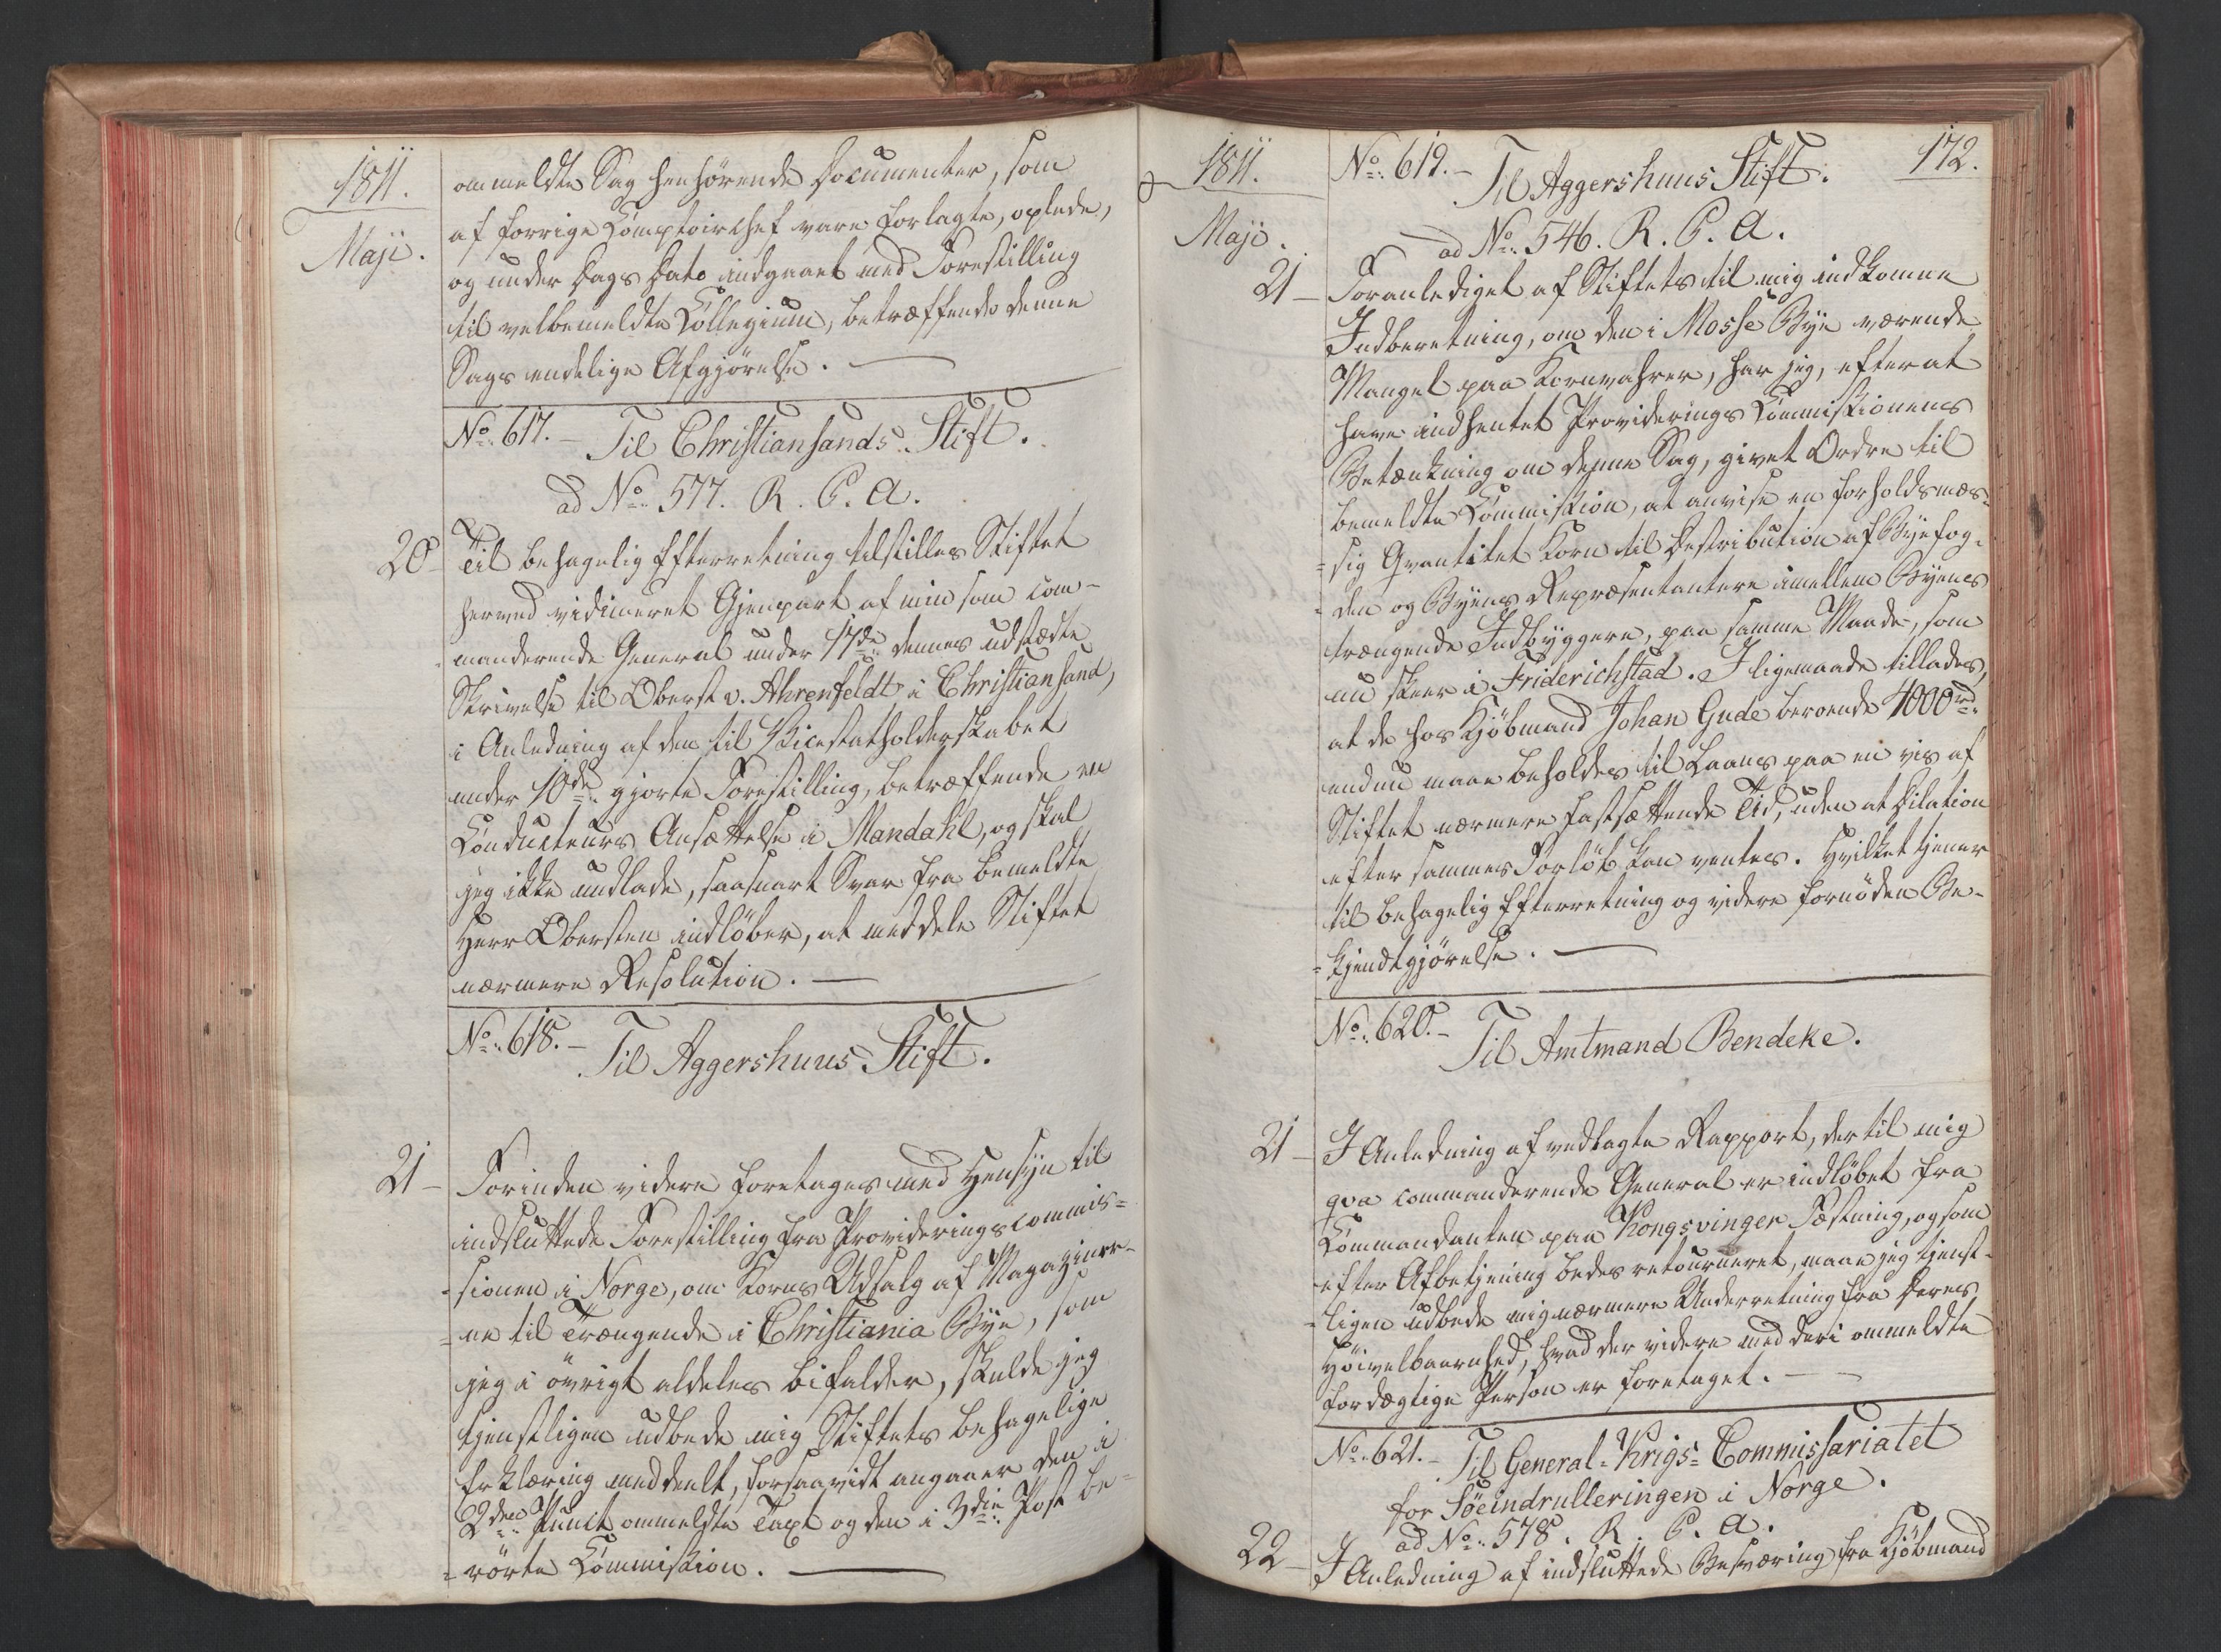 1811.
Maji.
ommeldte Sag henhørende Documenter, som
af forrige Comptoirchef vare forlagte, oplede,
og under Dags Dato indgaaet med Forestilling
til velbemeldte Collegium, betræffende denne
Sags endelige Afgjørelse. —
No. 617. – Til Christiansands Stift.
ad No. 577. R. P. A.
20 – Til behagelig Efterretning tilstilles Stiftet
herved vidimeret Gjenpart af min som com-
manderende General under 17de dennes udstædte
Skrivelse til Oberst v. Ahrenfeldt i Christiansand,
i Anledning af den til Vicestatholderskabet
under 10de gjorte Forestilling, betræffende en
Conducteurs Ansættelse i Mandahl, og skal
jeg ikke undlade, saasnart Svar fra bemeldte
Herr Obersten indløber, at meddele Stiftet
nærmere Resolution. —
No. 618. – Til Aggershuus Stift.
21 – Forinden videre foretages med Hensyn til
indsluttede Forestilling fra Provideringscommis=
=sionen i Norge, om Korns Udsalg af Magaziner-
=ne til Trængende i Christiania Bye, som
jeg i övrigt aldeles bifalder, skulde jeg
tjenstligen udbede mig Stiftets behagelige
Erklæring meddeelt, forsaavidt angaaer den i
2den Punct ommeldte Taxt og den i 3die Post be=
=rörte Commission. —
1811.
Maji.
172.
No. 619. – Til Aggershuus Stift.
ad No. 546. R. P. A.
21 – Foranlediget af Stiftets til mig indkomne
Indberetning, om den i Mosse Bye værende
Mangel paa Kornvahrer, har jeg, efter at
have indhentet Providerings Commissionens
Betænkning om denne Sag, givet Ordre til
bemeldte Commission, at anvise en forholdsmæs=
=sig Qvantitet Korn til Destribution af Byefog-
=den og Byens Repræsentantere imellem Byens
trængende Indbyggere, paa samme Maade, som
nu skeer i Friderichstad. I ligemaade tillades,
at de hos Kjöbmand Johan Gude beroende 4000 rd.
endnu maae beholdes til Laans paa en vis af
Stiftet nærmere fastsættende Tid, uden at Dilation
efter sammes Forløb kan ventes. Hvilket tjener
til behagelig Efterretning og videre fornöden Be-
=kjendtgjörelse. —
No. 620. – Til Amtmand Bendeke.
21 – I Anledning af vedlagte Rapport, der til mig
qva commanderende General er indlöbet fra
Commandanten paa Kongsvinger Fæstning, og som
efter Afbetjening bedes retourneret, maae jeg tjenst-
=ligen udbede mig nærmere Underretning fra Deres
Höivelbaarnhed, hvad der videre med deri ommeldte
fordægtige Person er foretaget. —
No. 621. – Til General=Krigs=Commissariatet
for Söeindrulleringen i Norge.
ad No. 578. R. P. A.
22 – I Anledning af indsluttede Besværing fra Kjöbmand